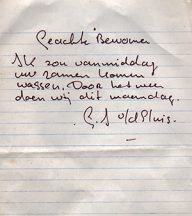 Geachte Bewoner
Ik zou vanmiddag
uw ramen komen
wassen. Door het weer
doen wij dit maandag.
G. J. v/d Sluis.